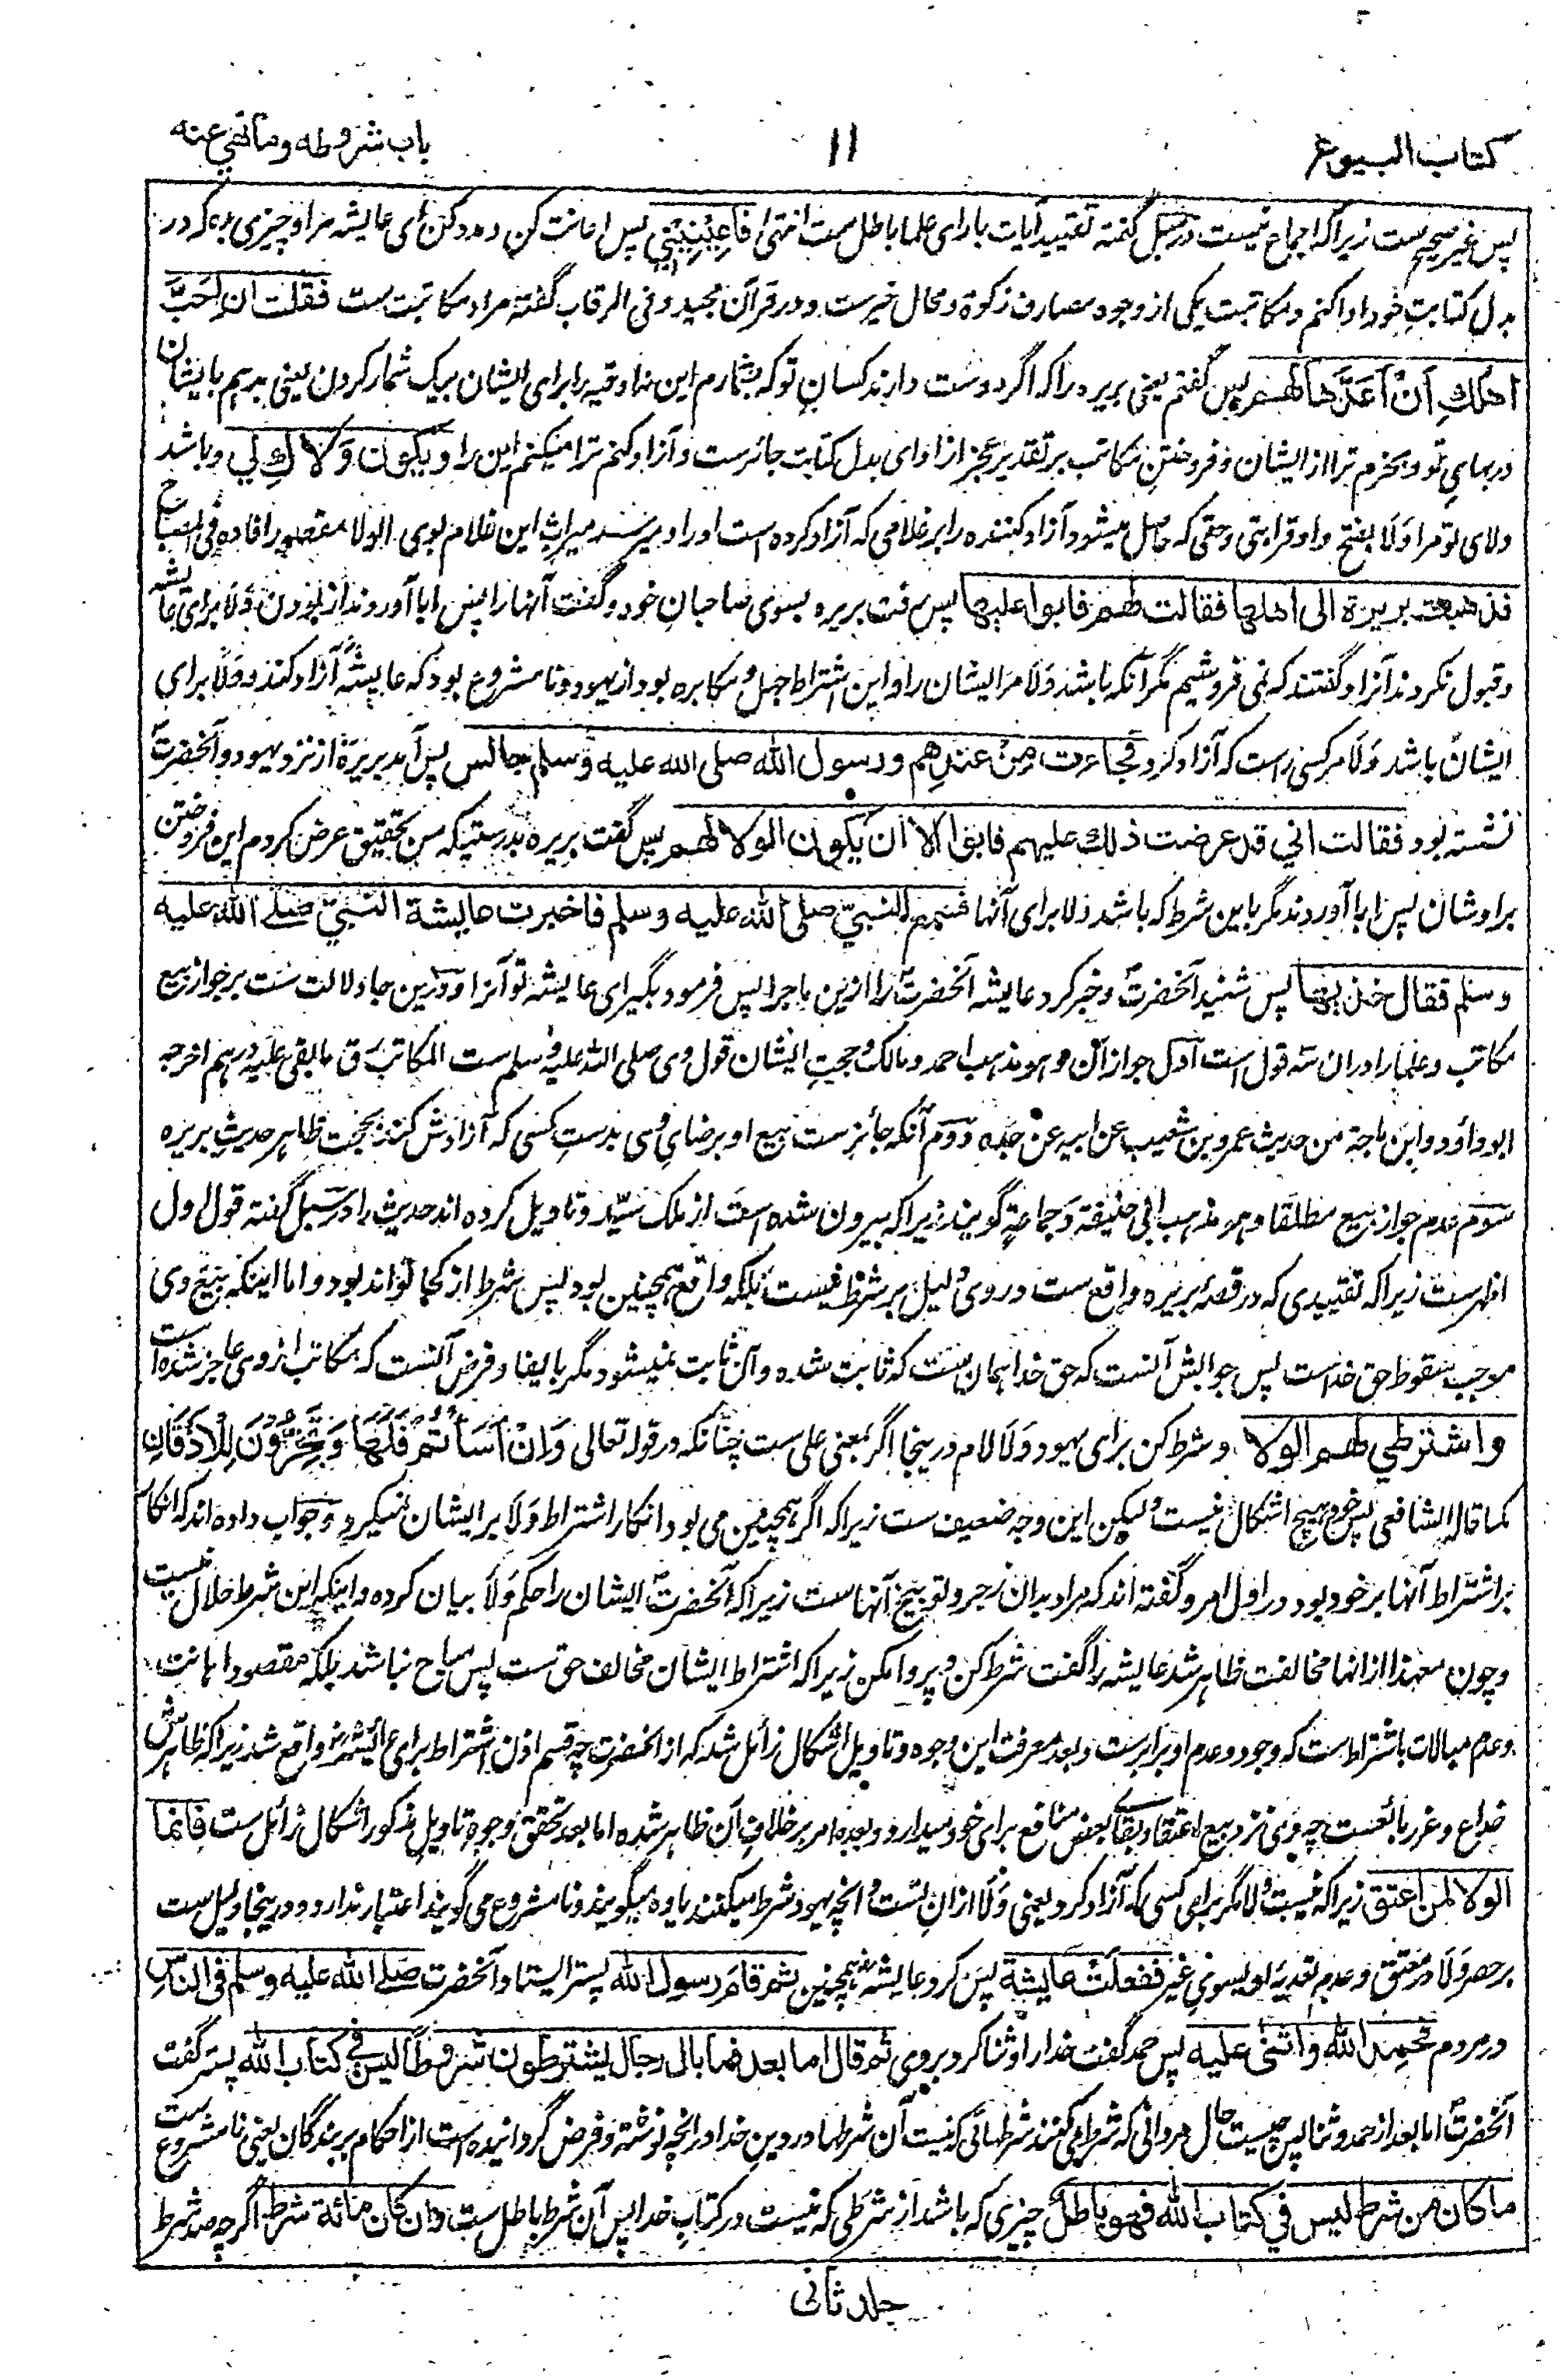 كتاب البيوع
١١
باب شروطه وما نهي عنه
پس غیر صحیح ست زیراکه اجماع نیست در سبل گفته تقیید آیات بارای علما باطل ست انتهی فَاَعِيْنِيْنِي پس اعانت کن و مدد کن ای عایشه مرا و چیزی بده که در
بدل کتابت خود ادا کنم و مکاتبت یکی از وجوه مصارف زکوة و محال خیرست و در قرآن مجید و فی الرقاب گفته مراد مکاتبت ست فقلت ان اَحَبَّ
اهلكِ اَنْ اَعَدَّهَا لهم پس گفتم یعنی بریره را که اگر دوست دارند کسان تو که بشمارم این نه اوقیه را برای ایشان بیک شمار کردن یعنی بدهم بایشان
دربهای تو و بخرم ترا از ایشان و فروختن مکاتب بر تقدیر عجز از ادای بدل کتابت جائزست و آزاد کنم ترا میکنم این را و يكون وَلاؤكِ لي و باشد
ولای تو مرا وَلا بفتح واو قرابتی وحقی که حاصل میشود آزاد کننده را بر غلامی که آزاد کرده است او را و میرسد میراث این غلام بوی الولا مقصور افاده فی المصباح
فذهبت بريرة الى اهلها فقالت لهم فابوا عليها پس رفت بریره بسوی صاحبان خود و گفت آنها را پس ابا آوردند از بودن ولا برای عایشه
و قبول نکردند آنرا و گفتند که نمی فروشیم مگر آنکه باشد ولا مر ایشان را و این اشتراط جهل و مکابره بود از یهود و نا مشروع بود که عایشه آزاد کند و ولا برای
ایشان باشد ولا مر کسی راست که آزاد کرد فجاءت مِنْ عندِهم ورسول الله صلى الله عليه وسلم جالس پس آمد بریرة از نزد یهود و آنحضرت
نشسته بود فقالت اني قد عرضت ذلك عليهم فابوا الا ان يكون الولا لهم پس گفت بریره بدرستیکه من بتحقیق عرض کردم این فروختن
براوشان پس ابا آوردند مگر باین شرط که باشد ولا برای آنها فسمع النبيّ صلى الله عليه وسلم فاخبرت عايشة النبيّ صلى الله عليه
وسلم فقال خذيها پس شنید آنحضرت و خبر کرد عایشه آنحضرت را ازین ماجرا پس فرمود بگیر ای عایشه تو آنرا و درین جا دلالت ست بر جواز بیع
مکاتب و علما را دران سه قول است اول جواز آن و هو مذهب احمد و مالک و حجت ایشان قول وی صلی الله علیه وسلم ست المکاتب رق ما بقی علیه درهم اخرجه
ابو داؤد و ابن ماجة من حدیث عمرو بن شعیب عن ابیه عن جده دوم آنکه جائزست بیع او برضای وی بدست کسی که آزادش کند بحجت ظاهر حدیث بریره
سوم عدم جواز بیع مطلقا و هو مذهب ابی حنیفة و جماعة گویند زیراکه بیرون شده است از ملک سید و تاویل کرده اند حدیث را در سبل گفته قول اول
اظهرست زیراکه تقییدی که در قصهٔ بریره واقع ست در وی دلیل بر شرط نیست بلکه واقع همچنین بود پس شرط از کجا تواند بود و اما اینکه بیع وی
موجب سقوط حق خداست پس جوابش آنست که حق خدا همان ست که ثابت شده و آن ثابت نمیشود مگر بایفا و فرض آنست که مکاتب از وی عاجز شده است
واشترطي لهم الولا و شرط کن برای یهود ولا لام درینجا اگر بمعنی علی ست چنانکه در قوله تعالی وَاِنْ اَسَأْتُمْ فَلَهَا وَيَخِرُّوْنَ لِلْاَذْقَانِ
کما قاله الشافعی پس خود هیچ اشکال نیست و لیکن این وجه ضعیف ست زیراکه اگر همچنین می بود انکار اشتراط ولا بر ایشان نمیکرد و جواب داده اند که انکار
بر اشتراط آنها بر خود بود در اول امر و گفته اند که مراد بدان زجر و توبیخ آنهاست زیراکه آنحضرت ایشان را حکم ولا بیان کرده و اینکه این شرط حلال نیست
و چون معهذا از انها مخالفت ظاهر شد عایشه را گفت شرط کن و پروا مکن زیراکه اشتراط ایشان مخالف حق ست پس مباح نباشد بلکه مقصود اهانت
و عدم مبالات باشتراط ست که وجود و عدم او برابرست و بعد معرفت این وجوه و تاویل اشکال زائل شد که از آنحضرت چه قسم اذن اشتراط برای عائشه واقع شد زیراکه ظاهرش
خداع و غرر بائعست چه وی نزد بیع اعتقاد بقای بعض منافع برای خود میدارد و بعده امر بر خلاف آن ظاهر شده اما بعد تحقق وجوه تاویل مذکور اشکال زائل ست فانما
الولا لمن اعتق زیراکه نیست ولا مگر برای کسی که آزاد کرد یعنی ولا ازان تست و انچه یهود شرط میکنند یاوه میگویند و نا مشروع می گویند اعتبار ندارد و درینجا دلیل ست
بر حصر ولا در معتق و عدم تعدیهٔ او بسوی غیر ففعلت عايشة پس کرد عایشه همچنین ثم قام رسول الله پستر ایستاد آنحضرت صلى الله عليه وسلم في الناس
در مردم فحمِدَ الله واثنى عليه پس حمد گفت خدا را و ثنا کرد بروی ثم قال اما بعد فما بال رجال يشترطون شروطًا ليس في كتاب الله پستر گفت
آنحضرت اما بعد از حمد و ثنا پس چیست حال مردانی که شرط می کنند شرطهائی که نیست آن شرطها در دین خدا و در انچه نوشته و فرض گردانیده است از احکام بر بندگان یعنی نا مشروع ست
ما كان من شرط ليس في كتاب الله فهو باطل چیزی که باشد از شرطی که نیست در کتاب خدا پس آن شرط باطل ست وان كان مائة شرط اگرچه صد شرط
جلد ثانی